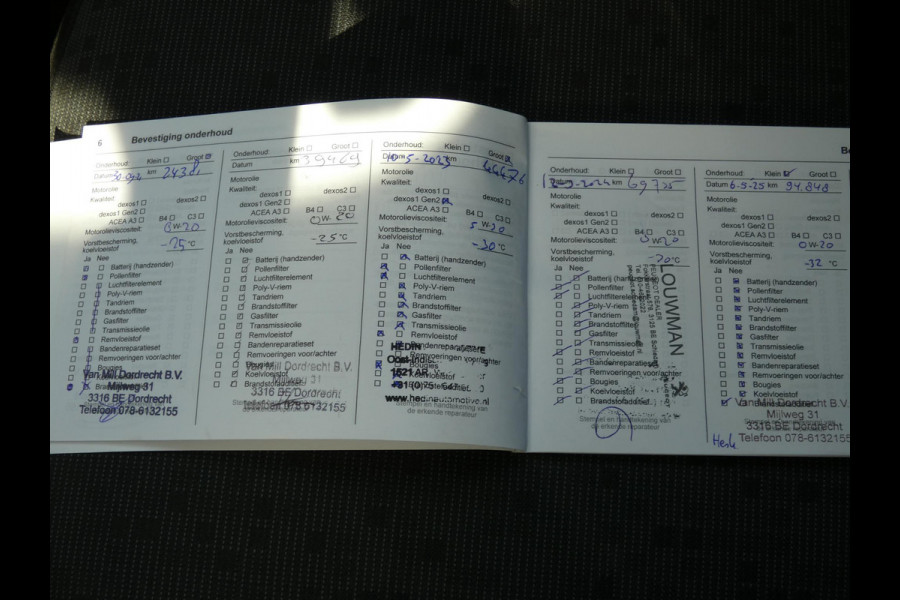 6 Bevestiging onderhoud
Onderhoud: Klein Groot
Datum km 24381
Motorolie
Kwaliteit
dexos1 dexos2
dexos1 Gen2
ACEA A3 B4 C3
Motorolieviscositeit: 0W-20
Vorstbescherming, koelvloeistof -25 °C
Ja Nee
Batterij (handzender)
Pollenfilter
Luchtfilterelement
Poly-V-riem
Tandriem
Brandstoffilter
Gasfilter
Transmissieolie
Remvloeistof
Bandenreparatieset
Remvoeringen voor/achter
Bougies
Van Mill Dordrecht B.V.
Mijlweg 31
3316 BE Dordrecht
Telefoon 078-6132155
Onderhoud: Klein Groot
Datum km 39469
Motorolie
Kwaliteit:
dexos1 dexos2
dexos1 Gen2
ACEA A3 B4 C3
Motorolieviscositeit: 0W-20
Vorstbescherming,
koelvloeistof -25 °C
Ja Nee
Batterij (handzender)
Pollenfilter
Luchtfilterelement
Poly-V-riem
Tandriem
Brandstoffilter
Gasfilter
Transmissieolie
Remvloeistof
Bandenreparatieset
Remvoeringen voor/achter
Koelvloeistof
Van Mill Dordrecht B.V.
Mijlweg 31
3316 BE Dordrecht
Telefoon 078-6132155
Onderhoud: Klein Groot
Datum 10-5-2023 km 44476
Motorolie
Kwaliteit:
dexos1 dexos2
dexos1 Gen2
ACEA A3 B4 C3
Motorolieviscositeit: 5W-30
Vorstbescherming,
koelvloeistof -30 °C
Ja Nee
Batterij (handzender)
Pollenfilter
Luchtfilterelement
Poly-V-riem
Tandriem
Brandstoffilter
Gasfilter
Transmissieolie
Remvloeistof
Bandenreparatieset
HEDIN
Remvoeringen voor/achter
www.hedinautomotive.nl
Stempel en handtekening van
de erkende reparateur
Onderhoud: Klein Groot
km 69735
Motorolie
Kwaliteit:
dexos1 dexos2
dexos1 Gen2
ACEA A3 B4 C3
Motorolieviscositeit: 0W-20
Vorstbescherming,
koelvloeistof
Ja Nee
Batterij (handzender)
Pollenfilter
Luchtfilterelement
Poly-V-riem
Tandriem
Brandstoffilter
Gasfilter
Transmissieolie
Remvloeistof
Bandenreparatieset
Remvoeringen voor/achter
Bougies
Koelvloeistof
Brandstoffilter
LOUWMAN
PEUGEOT DEALER
Stempel en handtekening van
de erkende reparateur
Onderhoud: Klein Groot
Datum 6-5-25 km 94.848
Motorolie
Kwaliteit:
dexos1 dexos2
dexos1 Gen2
ACEA A3 B4 C3
Motorolieviscositeit: 0W-20
Vorstbescherming,
koelvloeistof -32 °C
Ja Nee
Batterij (handzender)
Pollenfilter
Luchtfilterelement
Poly-V-riem
Tandriem
Brandstoffilter
Gasfilter
Transmissieolie
Remvloeistof
Bandenreparatieset
Remvoeringen voor/achter
Bougies
Koelvloeistof
Van Mill Dordrecht B.V.
Mijlweg 31
3316 BE Dordrecht
Telefoon 078-6132155